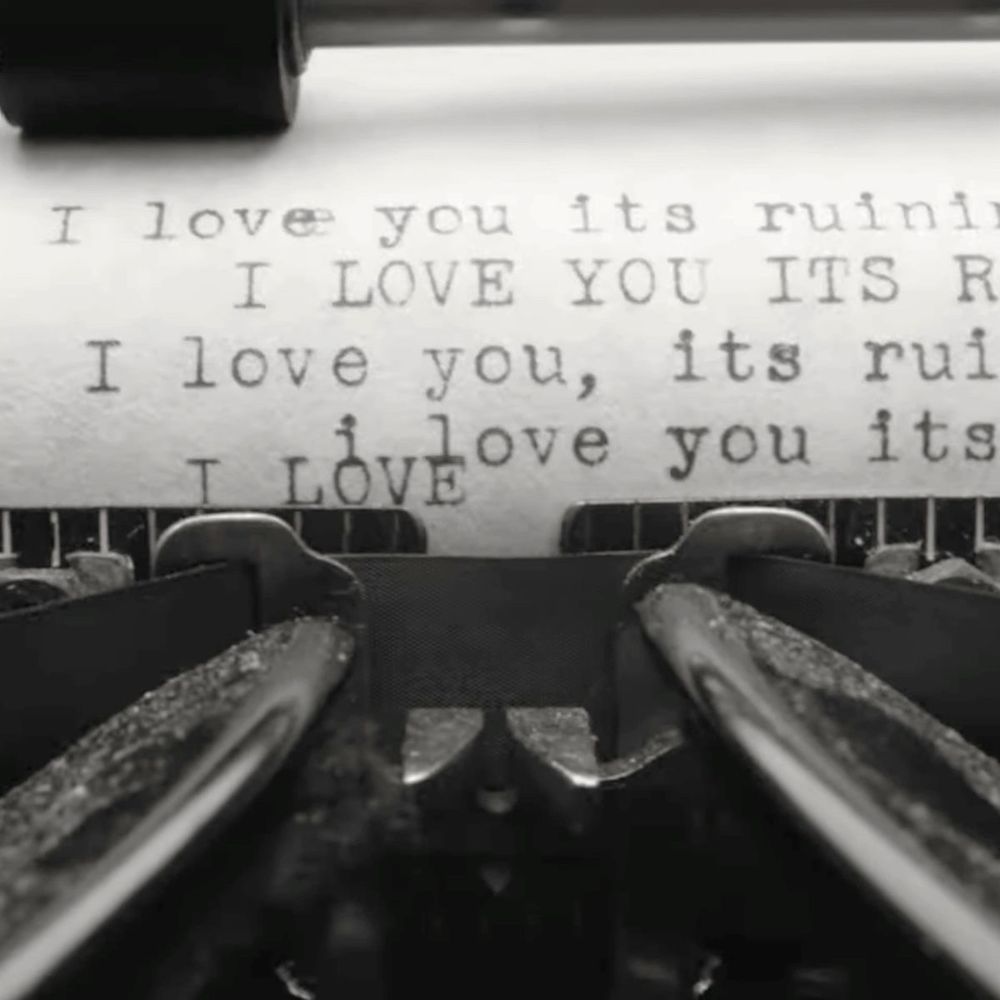 I love you its ruinin
I LOVE YOU ITS R
I love you, its rui
i love you its
I LOVE